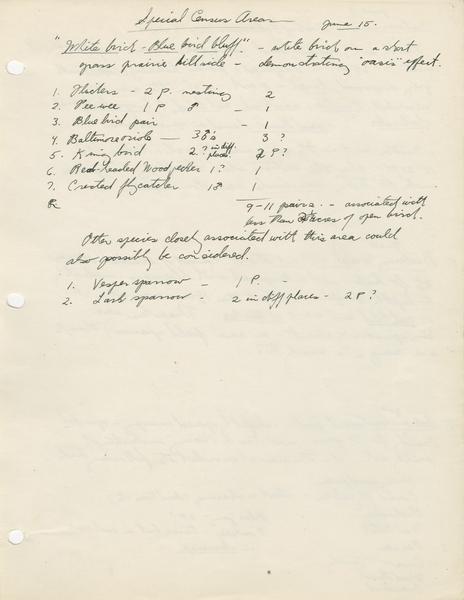 Special Census Areas June 15.
"White birch - Blue bird bluff". - white birch on a short
grass prairie hillside - demonstrating "oasis" effect.
1. Flickers - 2 P. nesting 2
2. Pee wee 1 P ♂ - 1
3. Blue bird pair - 1
4. Baltimore oriole - 3 ♂'s 3 ?
5. King bird 2 ? in diff. places. 2 P ?
6. Red-headed Woodpecker 1 ? 1
7. Crested flycatcher 1 ♂ 1
9-11 pairs. - associated with
less than acres of open birch.
Other species closely associated with this area could
also possibly be considered.
1. Vesper sparrow - 1 P. -
2. Lark sparrow - 2 in diff places - 2 P ?